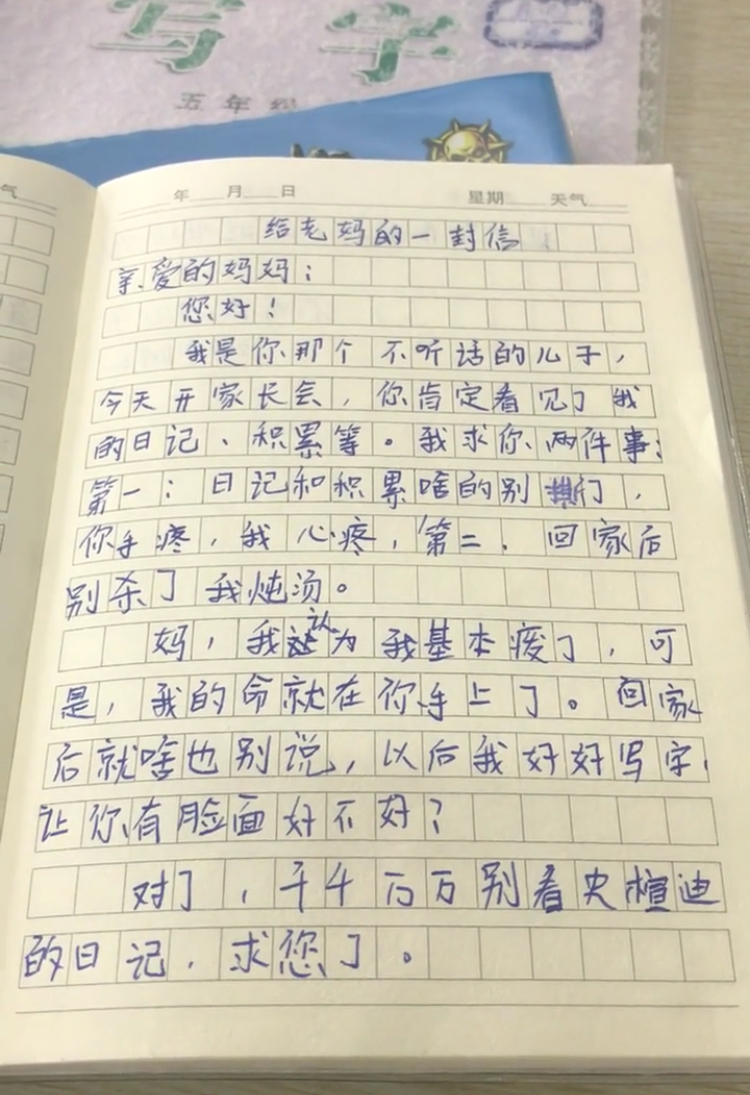 写字
五年级
气
年 月 日 星期 天气
给老妈的一封信
亲爱的妈妈：
您好！
我是你那个不听话的儿子，
今天开家长会，你肯定看见了我
的日记、积累等。我求你两件事：
第一：日记和积累啥的别撕，
你手疼，我心疼，第二．回家后
别杀了我炖汤。
妈，我认为我基本废了，可
是，我的命就在你手上了。回家
后就啥也别说，以后我好好写字，
让你有脸面好不好？
对了，千千万万别看史楦迪
的日记，求您了。